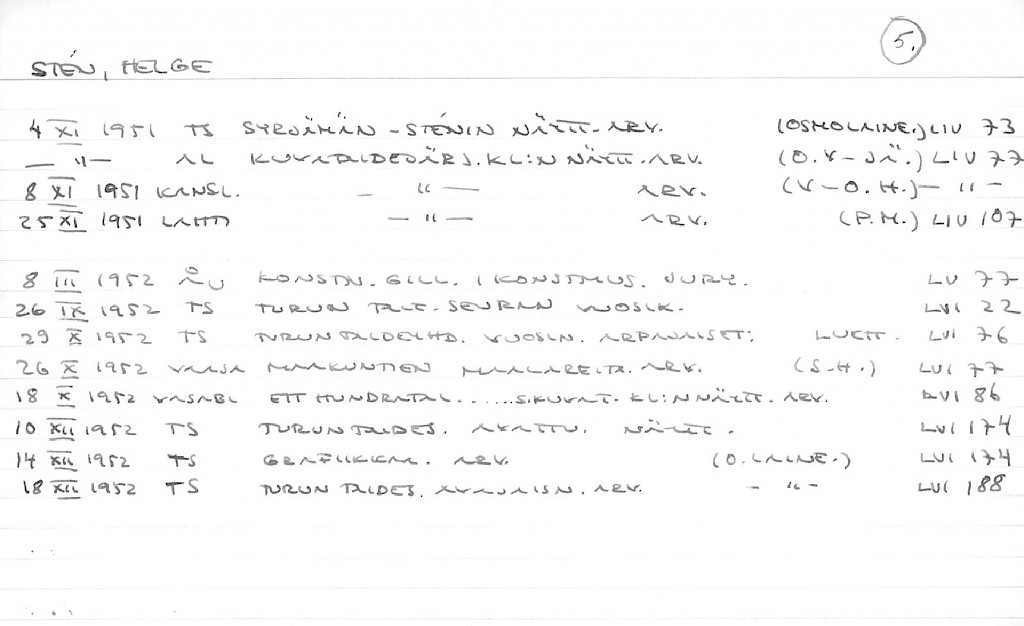 5.
STÉN, HELGE
4 XI 1951 TS SYRJÄMÄN - STÉNIN NÄYTT. ARV. (OSMO LAINE.) LIV 73
— " — AL KUVATAIDEJÄRJ. KL:N NÄYTT. ARV. (O.V-JÄ.) LIV 77
8 XI 1951 KANSL. — " — ARV. (V-O.H.) — " —
25 XI 1951 LAHTI — " — ARV. (P.M.) LIV 107
8 III 1952 ÅU KONSTN. GILL. I KONSTMUS. JURY. LV 77
26 IX 1952 TS TURUN TAIT. SEURAN VUOSIK. LVI 22
29 X 1952 TS TURUN TAIDEYHD. VUOSIN. ARPAJAISET: LUETT. LVI 76
26 X 1952 VAASA MAAKUNTIEN MAALAREITA. ARV. (S-H.) LVI 77
18 X 1952 VASABL ETT HUNDRATAL......S.KUVAT. KL:N NÄYTT. ARV. LVI 86
10 XII 1952 TS TURUN TAIDES. AVATTU. NÄYTT. LVI 174
14 XII 1952 TS GRAFIIKKAA. ARV. (O. LAINE.) LVI 174
18 XII 1952 TS TURUN TAIDES. ARV. — " — LVI 188